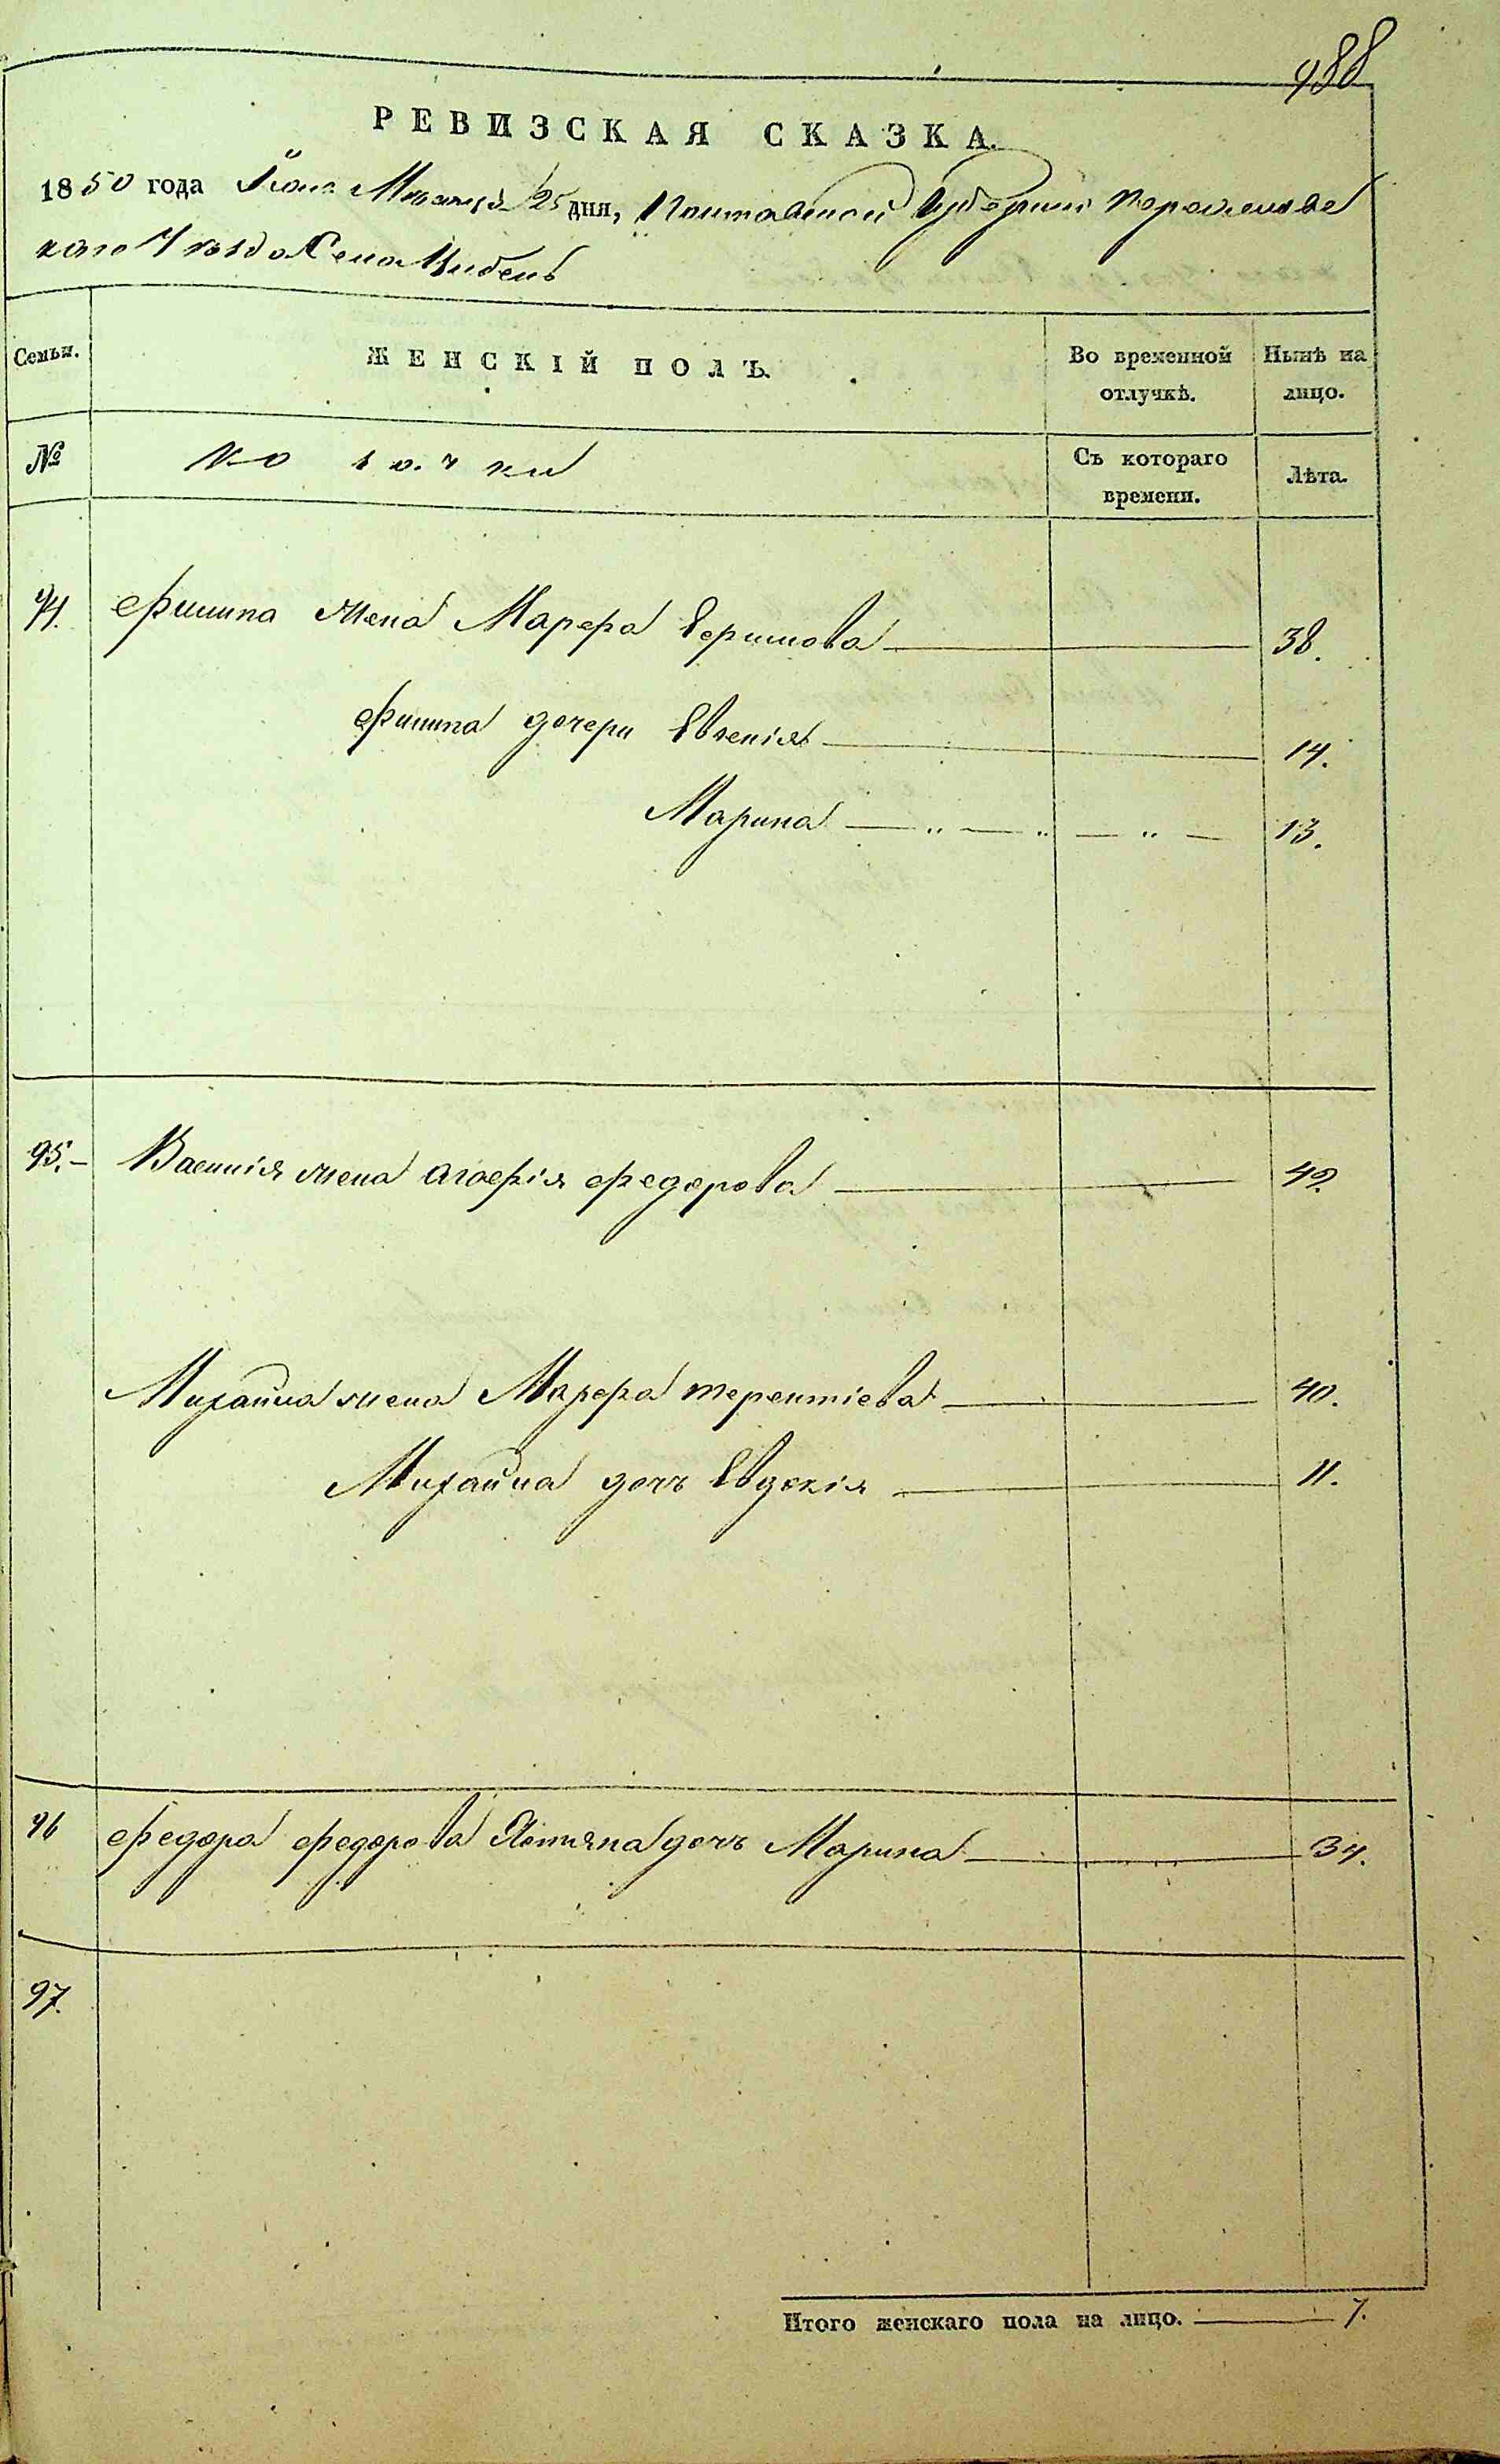 988
РЕВИЗСКАЯ СКАЗКА.
1850 года Мѣсяца 25 дня, Полтавской Губерніи Переяславс
каго Уѣзда Села Цибель
Семьи.
ЖЕНСКІЙ ПОЛЪ.
Во временной отлучкѣ.
Нынѣ на лицо.
№
Съ котораго времени.
Лѣта.
94. Филипа жена Марфа Ефимова 38.
Филипа дочери Евгенія 14.
Марина — „ — „ — „ — 13.
95. Василія жена Агафія Федорова 49.
Михайла жена Марфа Терентіева 40.
Михайла дочь Евдокія 11.
96 Федора Федорова дочь Марина 34.
97.
Итого женскаго пола на лицо. 7.